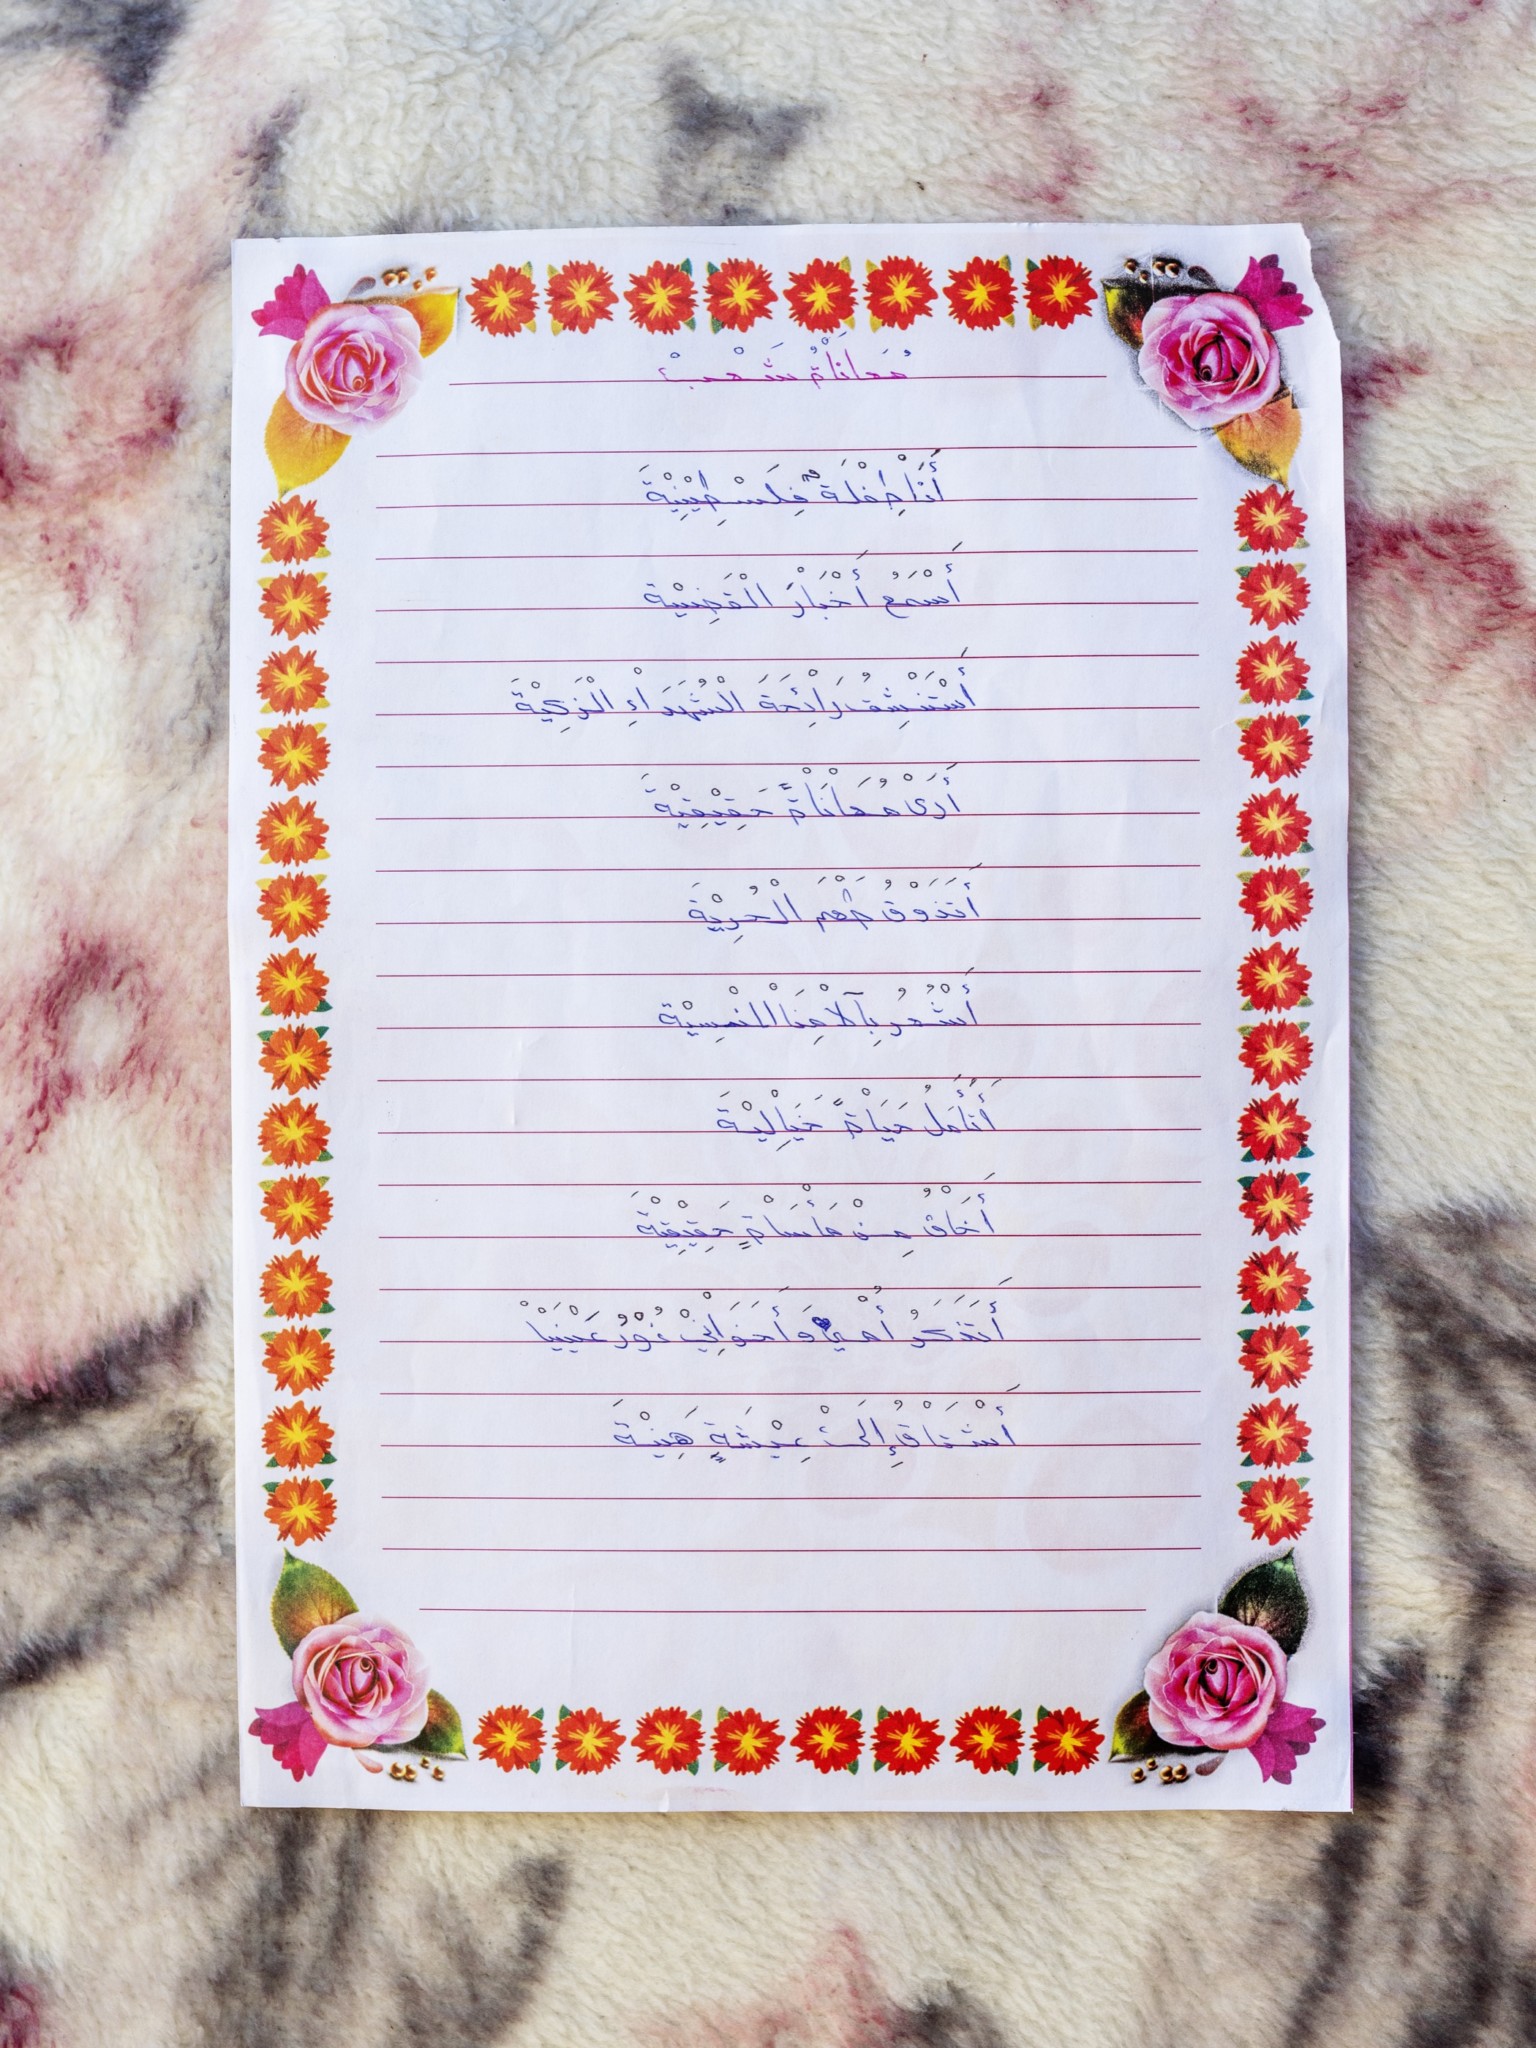 مُعَانَاْةُ شَعْبْ
أَنَاْ طِفْلَةٌ فِلَسْطِيْنِيْةَ
أَسْمَعُ أَخْبَاْرَ الْقَضِيْةَ
أَسْتَنْشِقُ رَاْئِحَةَ الْشُهَدَاْءِ الْزَكِيْةَ
أَرَىْ مُعَانَاْةً حَقِيْقِيْةَ
أَتَذَوْقُ طَعْمَ الْحُرِيْةَ
أَشْعُرُ بِآلَاْمِنَاْ الْنَفْسِيْةَ
أَتَأَمَلُ حَيَاْةً خَيَاْلِيْةَ
أَخَاْفُ مِنْ مَأْسَاْةٍ حَقِيْقِيْةَ
أَتَذَكَرُ أُمْيْ وَ أَخَوَاْتِيْ نُوْرُ عَيْنَيَاْ
أَشْتَاْقُ إِلَىْ عِيْشَةٍ هَنِيْةَ